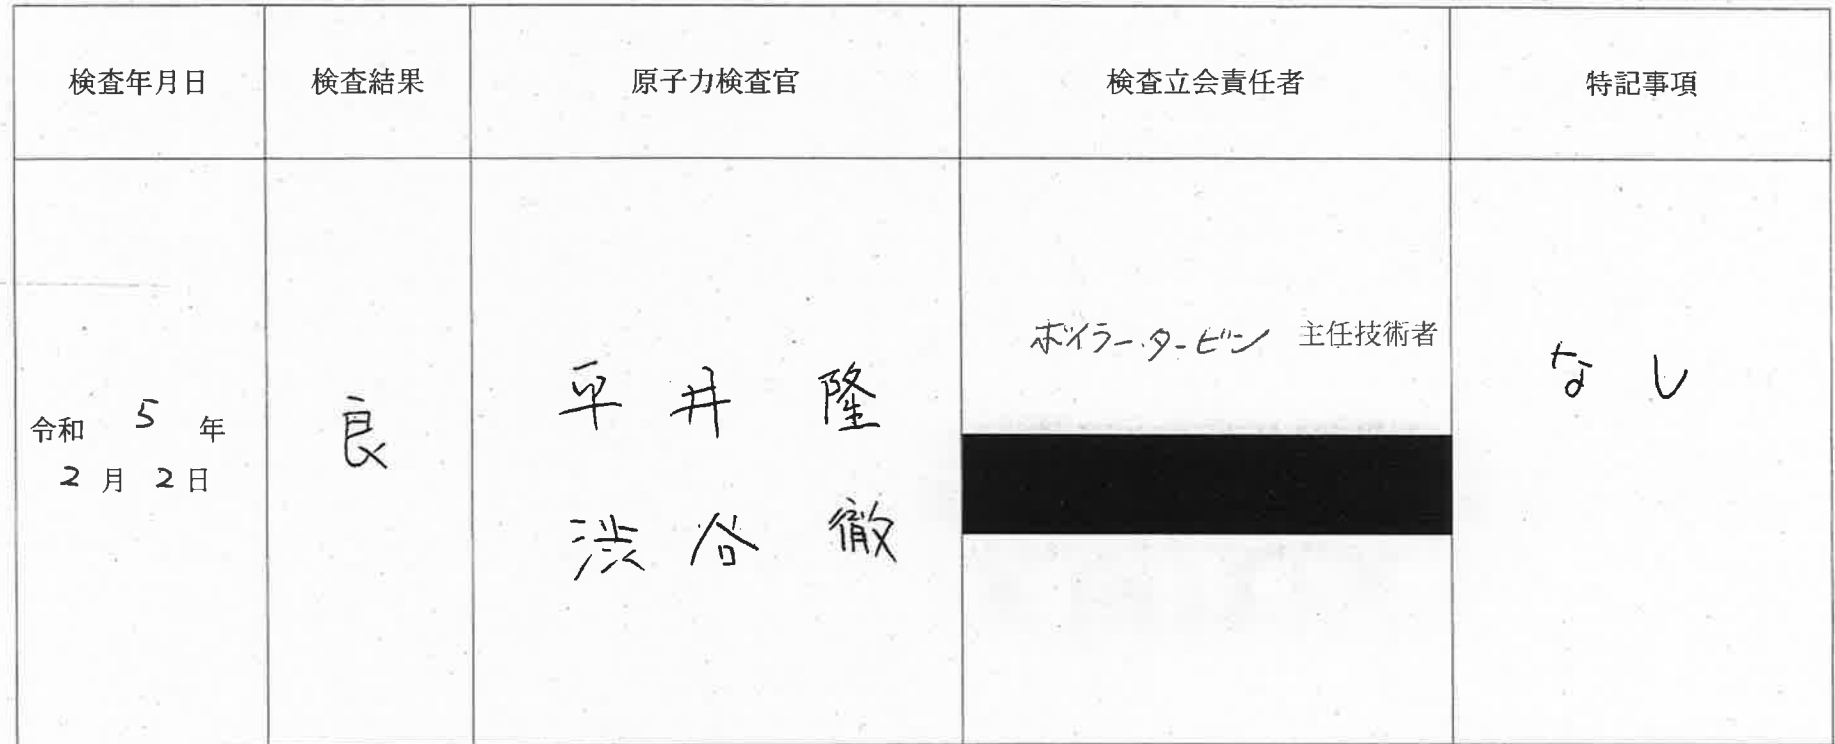 検査年月日 検査結果 原子力検査官 検査立会責任者 特記事項
令和 5 年
2 月 2 日
良
平井 隆
渋谷 徹
ボイラー・タービン 主任技術者
なし